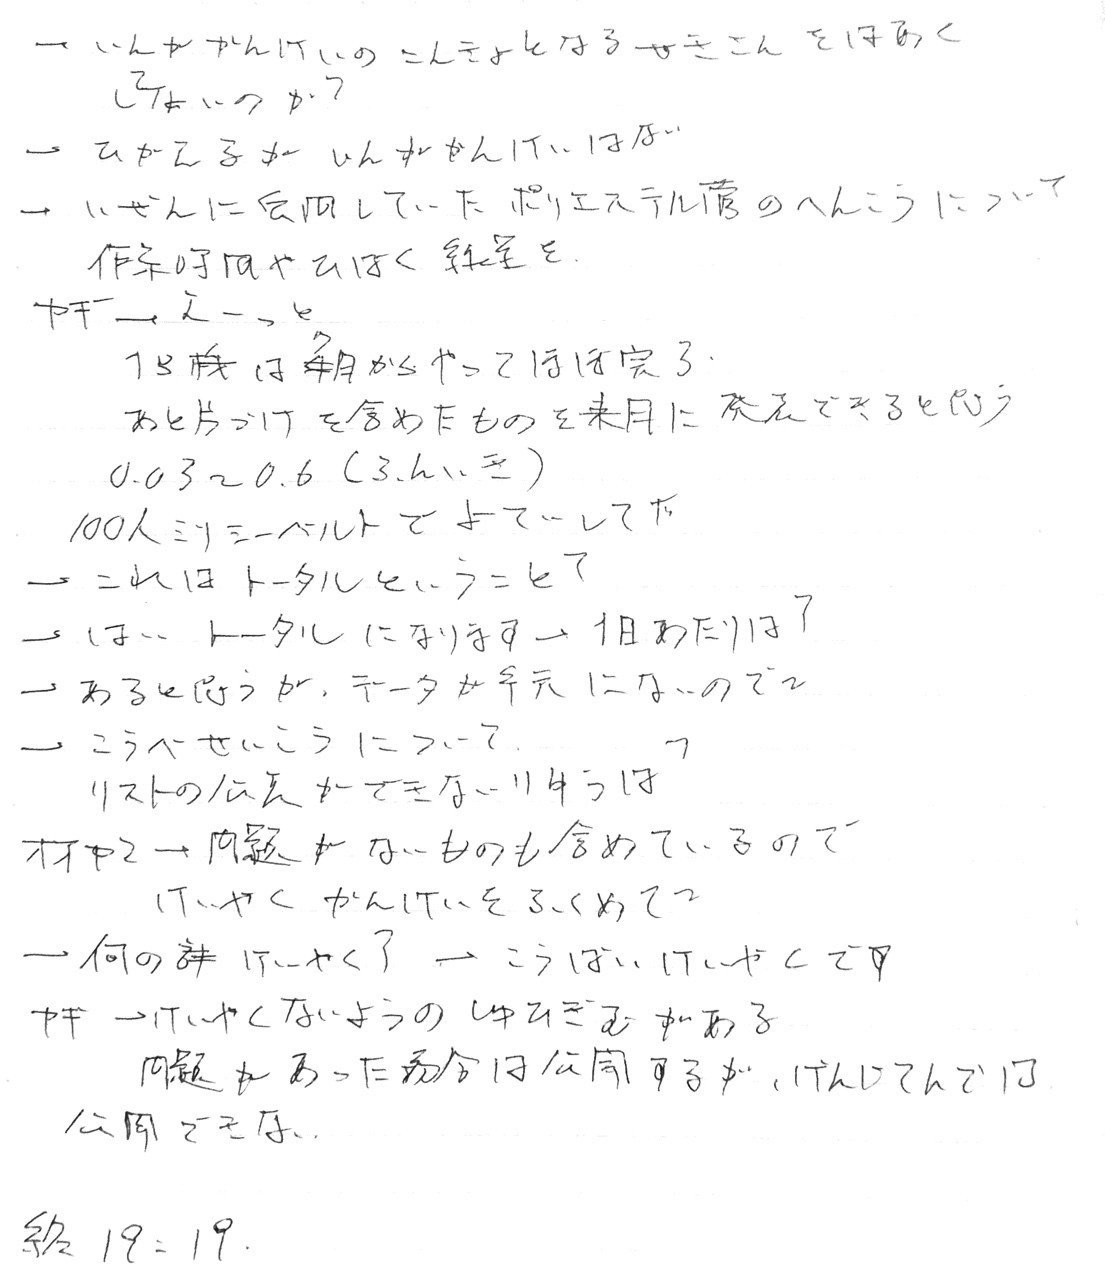 → いんがかんけいのこんきょとなるせきこんをはあく
してよいのか?
→ ひかえるが いんがかんけいはない
→ いぜんに会同していたポリエステル管のへんこうについて
作業時間やひばく線量を
ヤギ → えーっと
は 7月からやってほぼ完了.
あと片づけを含めたものを来月に発表できると思う
0.03~0.6 (ふんいき)
100人ミリシーベルトでよてーしてた
→ これはトータルということ?
→ はい トータルになります → 1日あたりは?
→ あると思うが、データが手元にないので~
→ こうべせいこうについて.
リストの公表ができないりゆうは?
オイヤマ → 問題がないものも含めているので
けいやくかんけいをふくめて~
→ 何の けいやく? → こうばいけいやくです
ヤギ → けいやくないようのしゅひぎむがある
問題があった場合は公開するが、げんじてんでは
公開できない.
終 19:19.